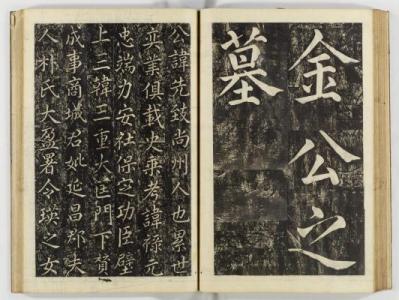 金公之
墓
公諱先致尚州人也累世
奕業俱載史乘考諱祿元
忠端力安社保之功臣壁
上三韓三重大匡門下贊
成事商城君妣延昌郡夫
人朴氏大盈署令瑛之女